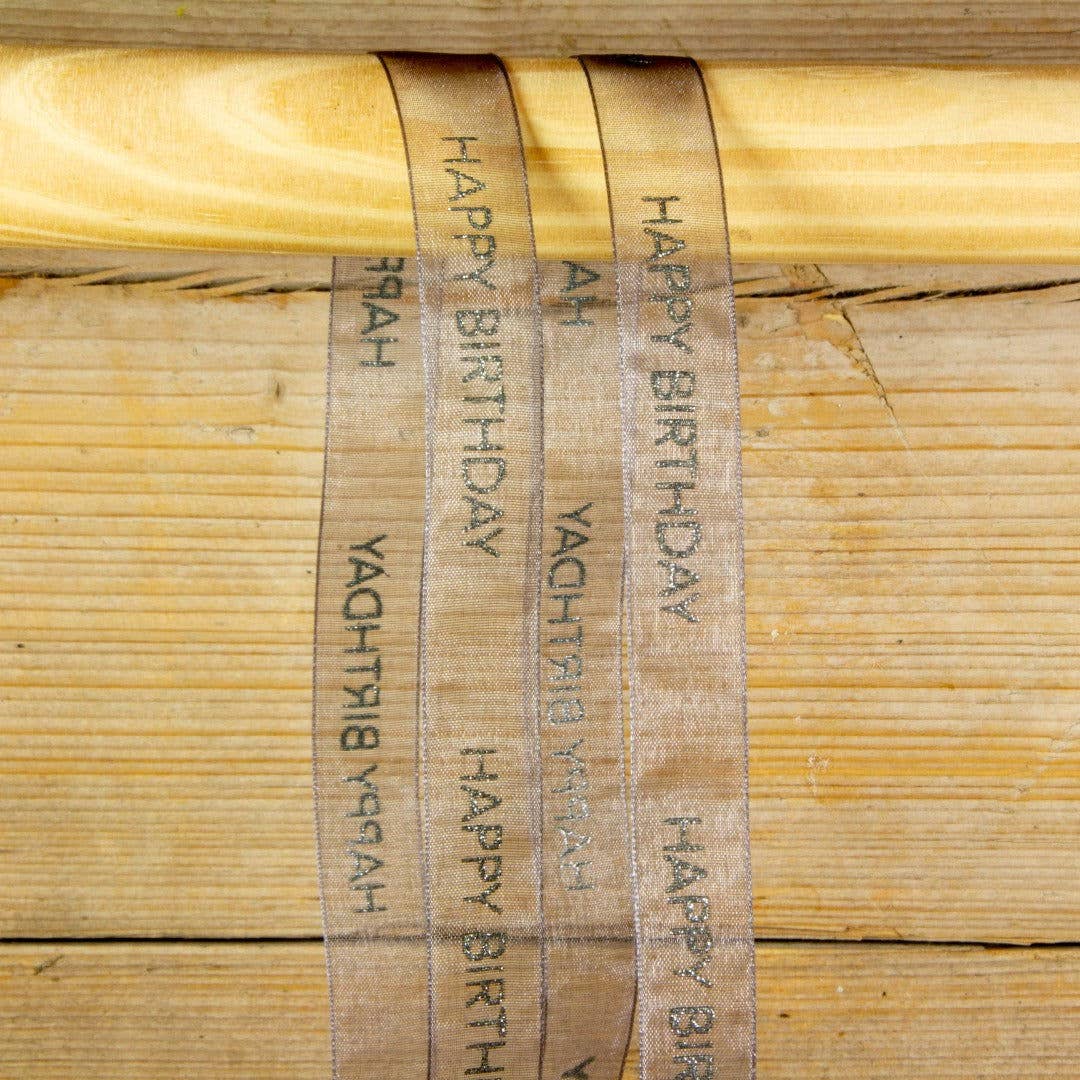 HAPPY
HAPPY BIRTHDAY
HAPPY BIRTHDAY
HAPPY BIRTH
HAP
HAPPY BIRTHDAY
HAPPY BIRTHDAY
HAPPY BIR